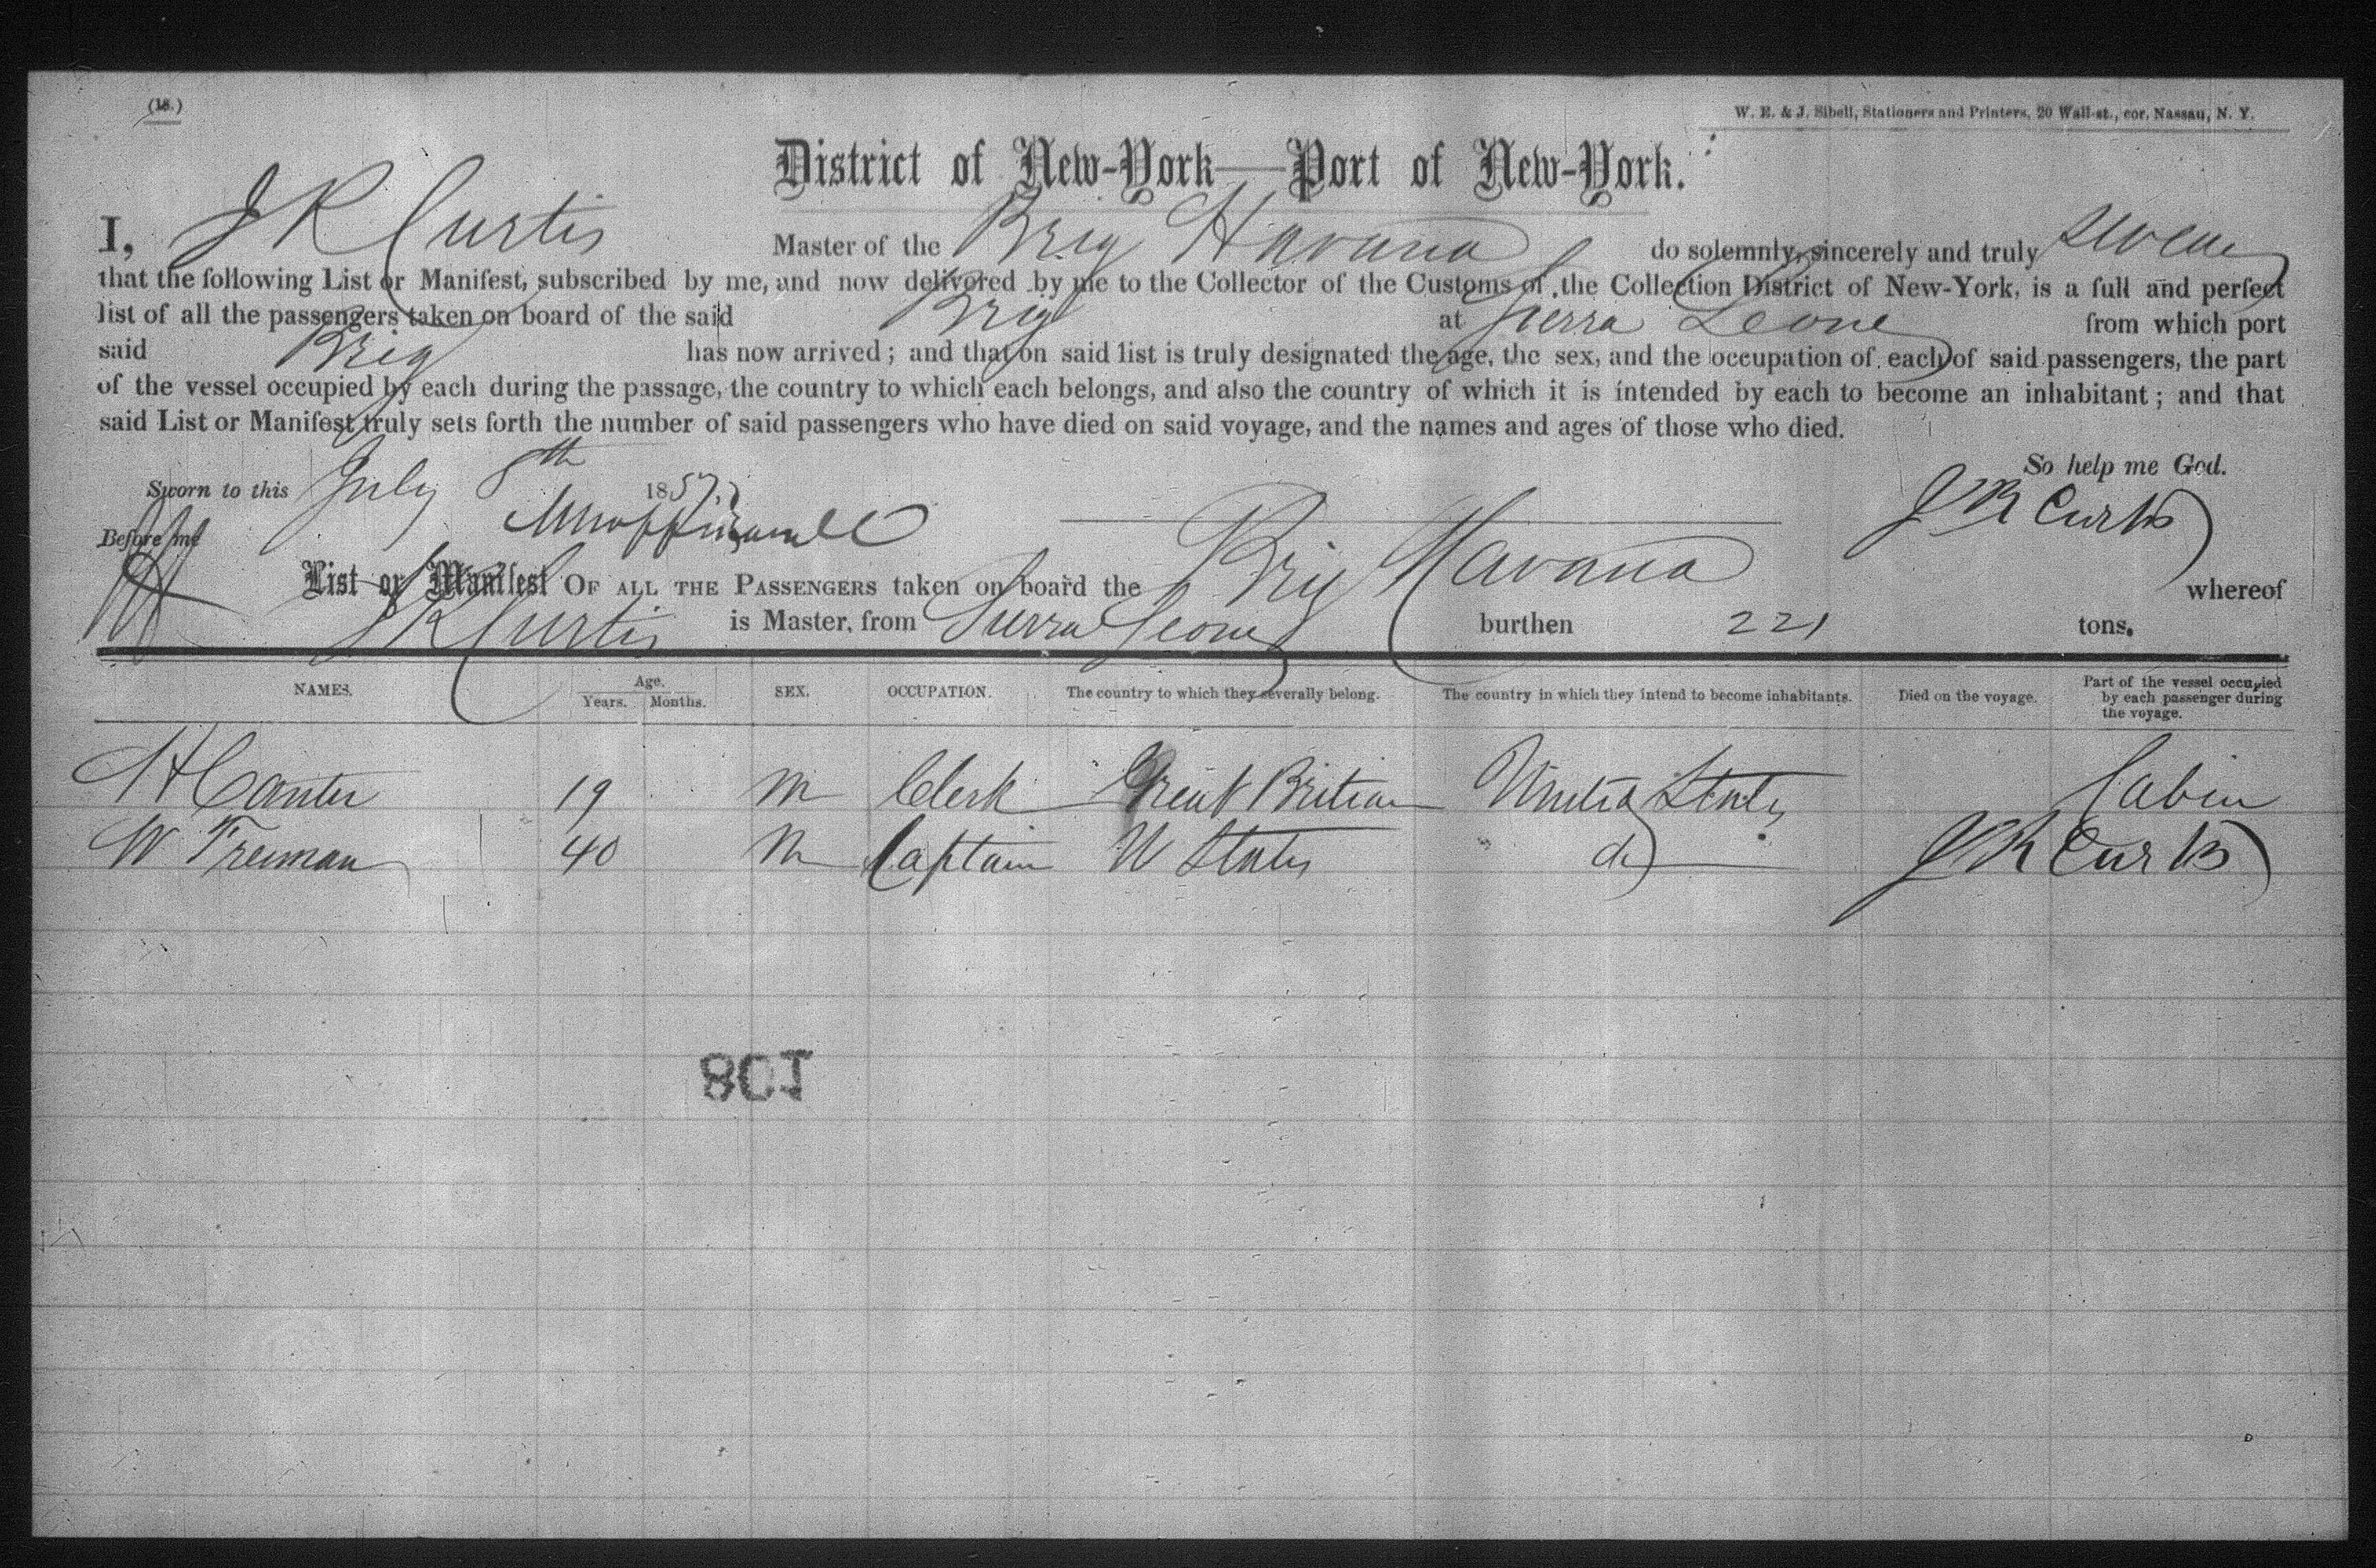 (18.)
W. E. & J. Sibell, Stationers and Printers, 20 Wall-st., cor. Nassau, N. Y.
District of New-York—Port of New-York.
I, J R Curtis Master of the Brig Havana do solemnly, sincerely and truly swear
that the following List or Manifest, subscribed by me, and now delivered by me to the Collector of the Customs of the Collection District of New-York, is a full and perfect
list of all the passengers taken on board of the said Brig at Sierra Leone from which port
said Brig has now arrived; and that on said list is truly designated the age, the sex, and the occupation of each of said passengers, the part
of the vessel occupied by each during the passage, the country to which each belongs, and also the country of which it is intended by each to become an inhabitant; and that
said List or Manifest truly sets forth the number of said passengers who have died on said voyage, and the names and ages of those who died.
So help me God.
Sworn to this July 8th 1857.
J R Curtis
Before me
List or Manifest OF ALL THE PASSENGERS taken on board the Brig Havana whereof
J R Curtis is Master, from Sierra Leone burthen 221 tons.
NAMES. Age. Years. Months. SEX. OCCUPATION. The country to which they severally belong. The country in which they intend to become inhabitants. Died on the voyage. Part of the vessel occupied by each passenger during the voyage.
H Canter 19 M Clerk Great Britian United States Cabin
W Freeman 40 M Captain U States " do J R Curtis
108